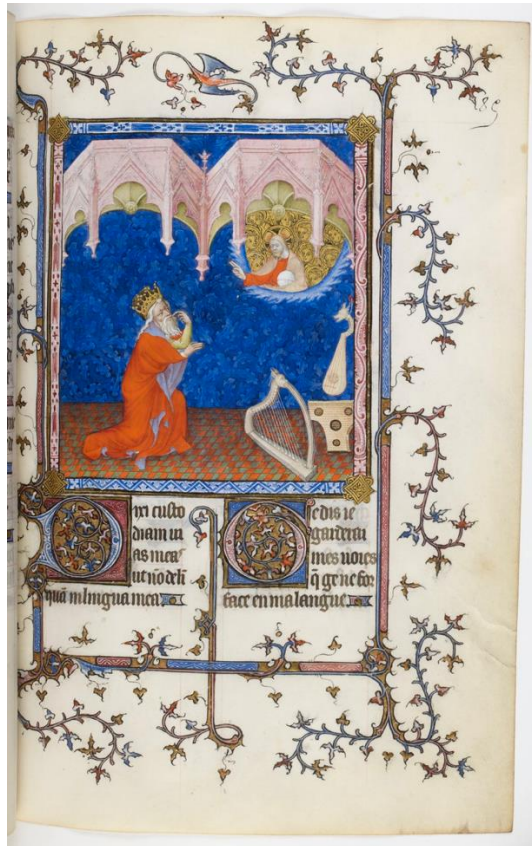 Dixi custo
diam ui
as meas
ut nō deli
quā in lingua mea
Ge dis ie
garderai
mes uoies
q̄ ge ne for
face en ma langue